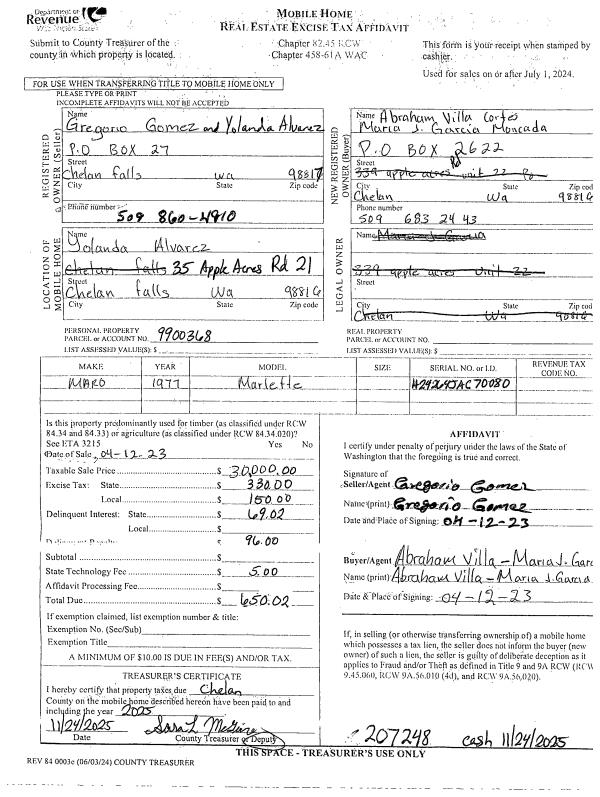 Department of
Revenue
Washington State
MOBILE HOME
REAL ESTATE EXCISE TAX AFFIDAVIT
Submit to County Treasurer of the
county in which property is located.
Chapter 82.45 RCW
Chapter 458-61A WAC
This form is your receipt when stamped by
cashier.
Used for sales on or after July 1, 2024.
FOR USE WHEN TRANSFERRING TITLE TO MOBILE HOME ONLY
PLEASE TYPE OR PRINT
INCOMPLETE AFFIDAVITS WILL NOT BE ACCEPTED
REGISTERED
OWNER (Seller)
Name
Gregorio Gomez and Yolanda Alvarez
P.O BOX 27
Street
Chelan falls Wa 98817
City State Zip code
Phone number
509 860-4910
NEW REGISTERED
OWNER (Buyer)
Name Abraham Villa Cortes
Maria J. Garcia Moncada
P.O BOX 2622
Street 339 apple acres unit 22 Rd
City State Zip code
Chelan Wa 98816
Phone number
509 683 24 43
LOCATION OF
MOBILE HOME
Yolanda Alvarez
Chelan falls 35 Apple Acres Rd 21
Street
Chelan falls Wa 98816
City State Zip code
LEGAL OWNER
Name Maria J. Garcia
339 apple acres unit 22
Street
City State Zip code
Chelan Wa
PERSONAL PROPERTY
PARCEL or ACCOUNT NO. 9900368
LIST ASSESSED VALUE(S): $
REAL PROPERTY
PARCEL or ACCOUNT NO.
LIST ASSESSED VALUE(S): $
MAKE YEAR MODEL SIZE SERIAL NO. or I.D. REVENUE TAX
CODE NO.
MARO 1977 Marlette
Is this property predominantly used for timber (as classified under RCW
84.34 and 84.33) or agriculture (as classified under RCW 84.34.020)?
See ETA 3215 Yes No
Date of Sale 04-12-23
Taxable Sale Price $ 30,000.00
Excise Tax: State $ 330.00
Local $ 150.00
Delinquent Interest: State $ 69.02
Local $
Delinquent Penalty $ 96.00
Subtotal $
State Technology Fee $ 5.00
Affidavit Processing Fee $
Total Due $ 650.02
If exemption claimed, list exemption number & title:
Exemption No. (Sec/Sub)
Exemption Title
A MINIMUM OF $10.00 IS DUE IN FEE(S) AND/OR TAX.
TREASURER'S CERTIFICATE
I hereby certify that property taxes due Chelan
County on the mobile home described hereon have been paid to and
including the year 2025
11/24/2025 Sara L McGuire
Date County Treasurer or Deputy
AFFIDAVIT
I certify under penalty of perjury under the laws of the State of
Washington that the foregoing is true and correct.
Signature of
Seller/Agent Gregorio Gomez
Name (print) Gregorio Gomez
Date and Place of Signing: 04-12-23
Buyer/Agent Abraham Villa - Maria J. Garc
Name (print) Abraham Villa - Maria J. Garcia
Date & Place of Signing: 04-12-23
If, in selling (or otherwise transferring ownership of) a mobile home
which possesses a tax lien, the seller does not inform the buyer (new
owner) of such a lien, the seller is guilty of deliberate deception as it
applies to Fraud and/or Theft as defined in Title 9 and 9A RCW (RCW
9.45.060, RCW 9A.56.010 (4d), and RCW 9A.56.020).
207248 cash 11/24/2025
THIS SPACE - TREASURER'S USE ONLY
REV 84 0003e (06/03/24) COUNTY TREASURER